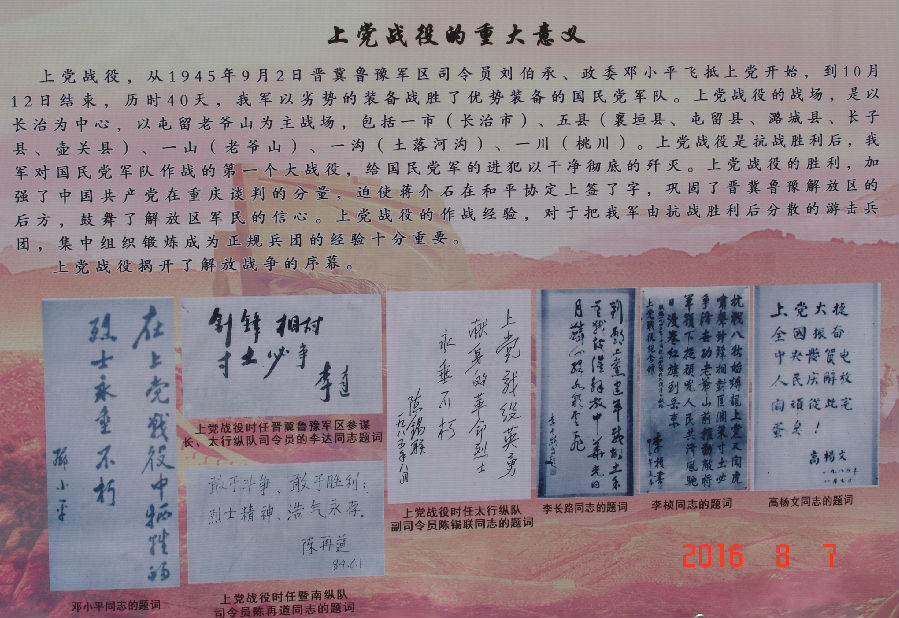 上党战役的重大意义
上党战役，从1945年9月2日晋冀鲁豫军区司令员刘伯承、政委邓小平飞抵上党开始，到10月
12日结束，历时40天，我军以劣势的装备战胜了优势装备的国民党军队。上党战役的战场，是以
长治为中心，以屯留老爷山为主战场，包括一市（长治市）、五县（襄垣县、屯留县、潞城县、长子
县、壶关县）、一山（老爷山）、一沟（土落河沟）、一川（桃川）。上党战役是抗战胜利后，我
军对国民党军队作战的第一个大战役，给国民党军的进犯以干净彻底的歼灭。上党战役的胜利，加
强了中国共产党在重庆谈判的分量，迫使蒋介石在和平协定上签了字，巩固了晋冀鲁豫解放区的
后方，鼓舞了解放区军民的信心。上党战役的作战经验，对于把我军由抗战胜利后分散的游击兵
团，集中组织锻炼成为正规兵团的经验十分重要。
上党战役揭开了解放战争的序幕。
在上党战役中牺牲的
烈士永垂不朽
邓小平
邓小平同志的题词
针锋相对
寸土必争
李达
上党战役时任晋冀鲁豫军区参谋
长、太行纵队司令员的李达同志题词
敢于斗争、敢于胜利；
烈士精神、浩气永存。
陈再道
84.6.1
上党战役时任暨南纵队
司令员陈再道同志的题词
上党战役英勇
献身的革命烈士
永垂不朽
陈锡联
一九八五年八月
上党战役时任太行纵队
副司令员陈锡联同志的题词
李长路同志的题词
李桢同志的题词
上党大捷
全国振奋
中央贺电
人民庆解放
高杨文
高杨文同志的题词
2016 8 7